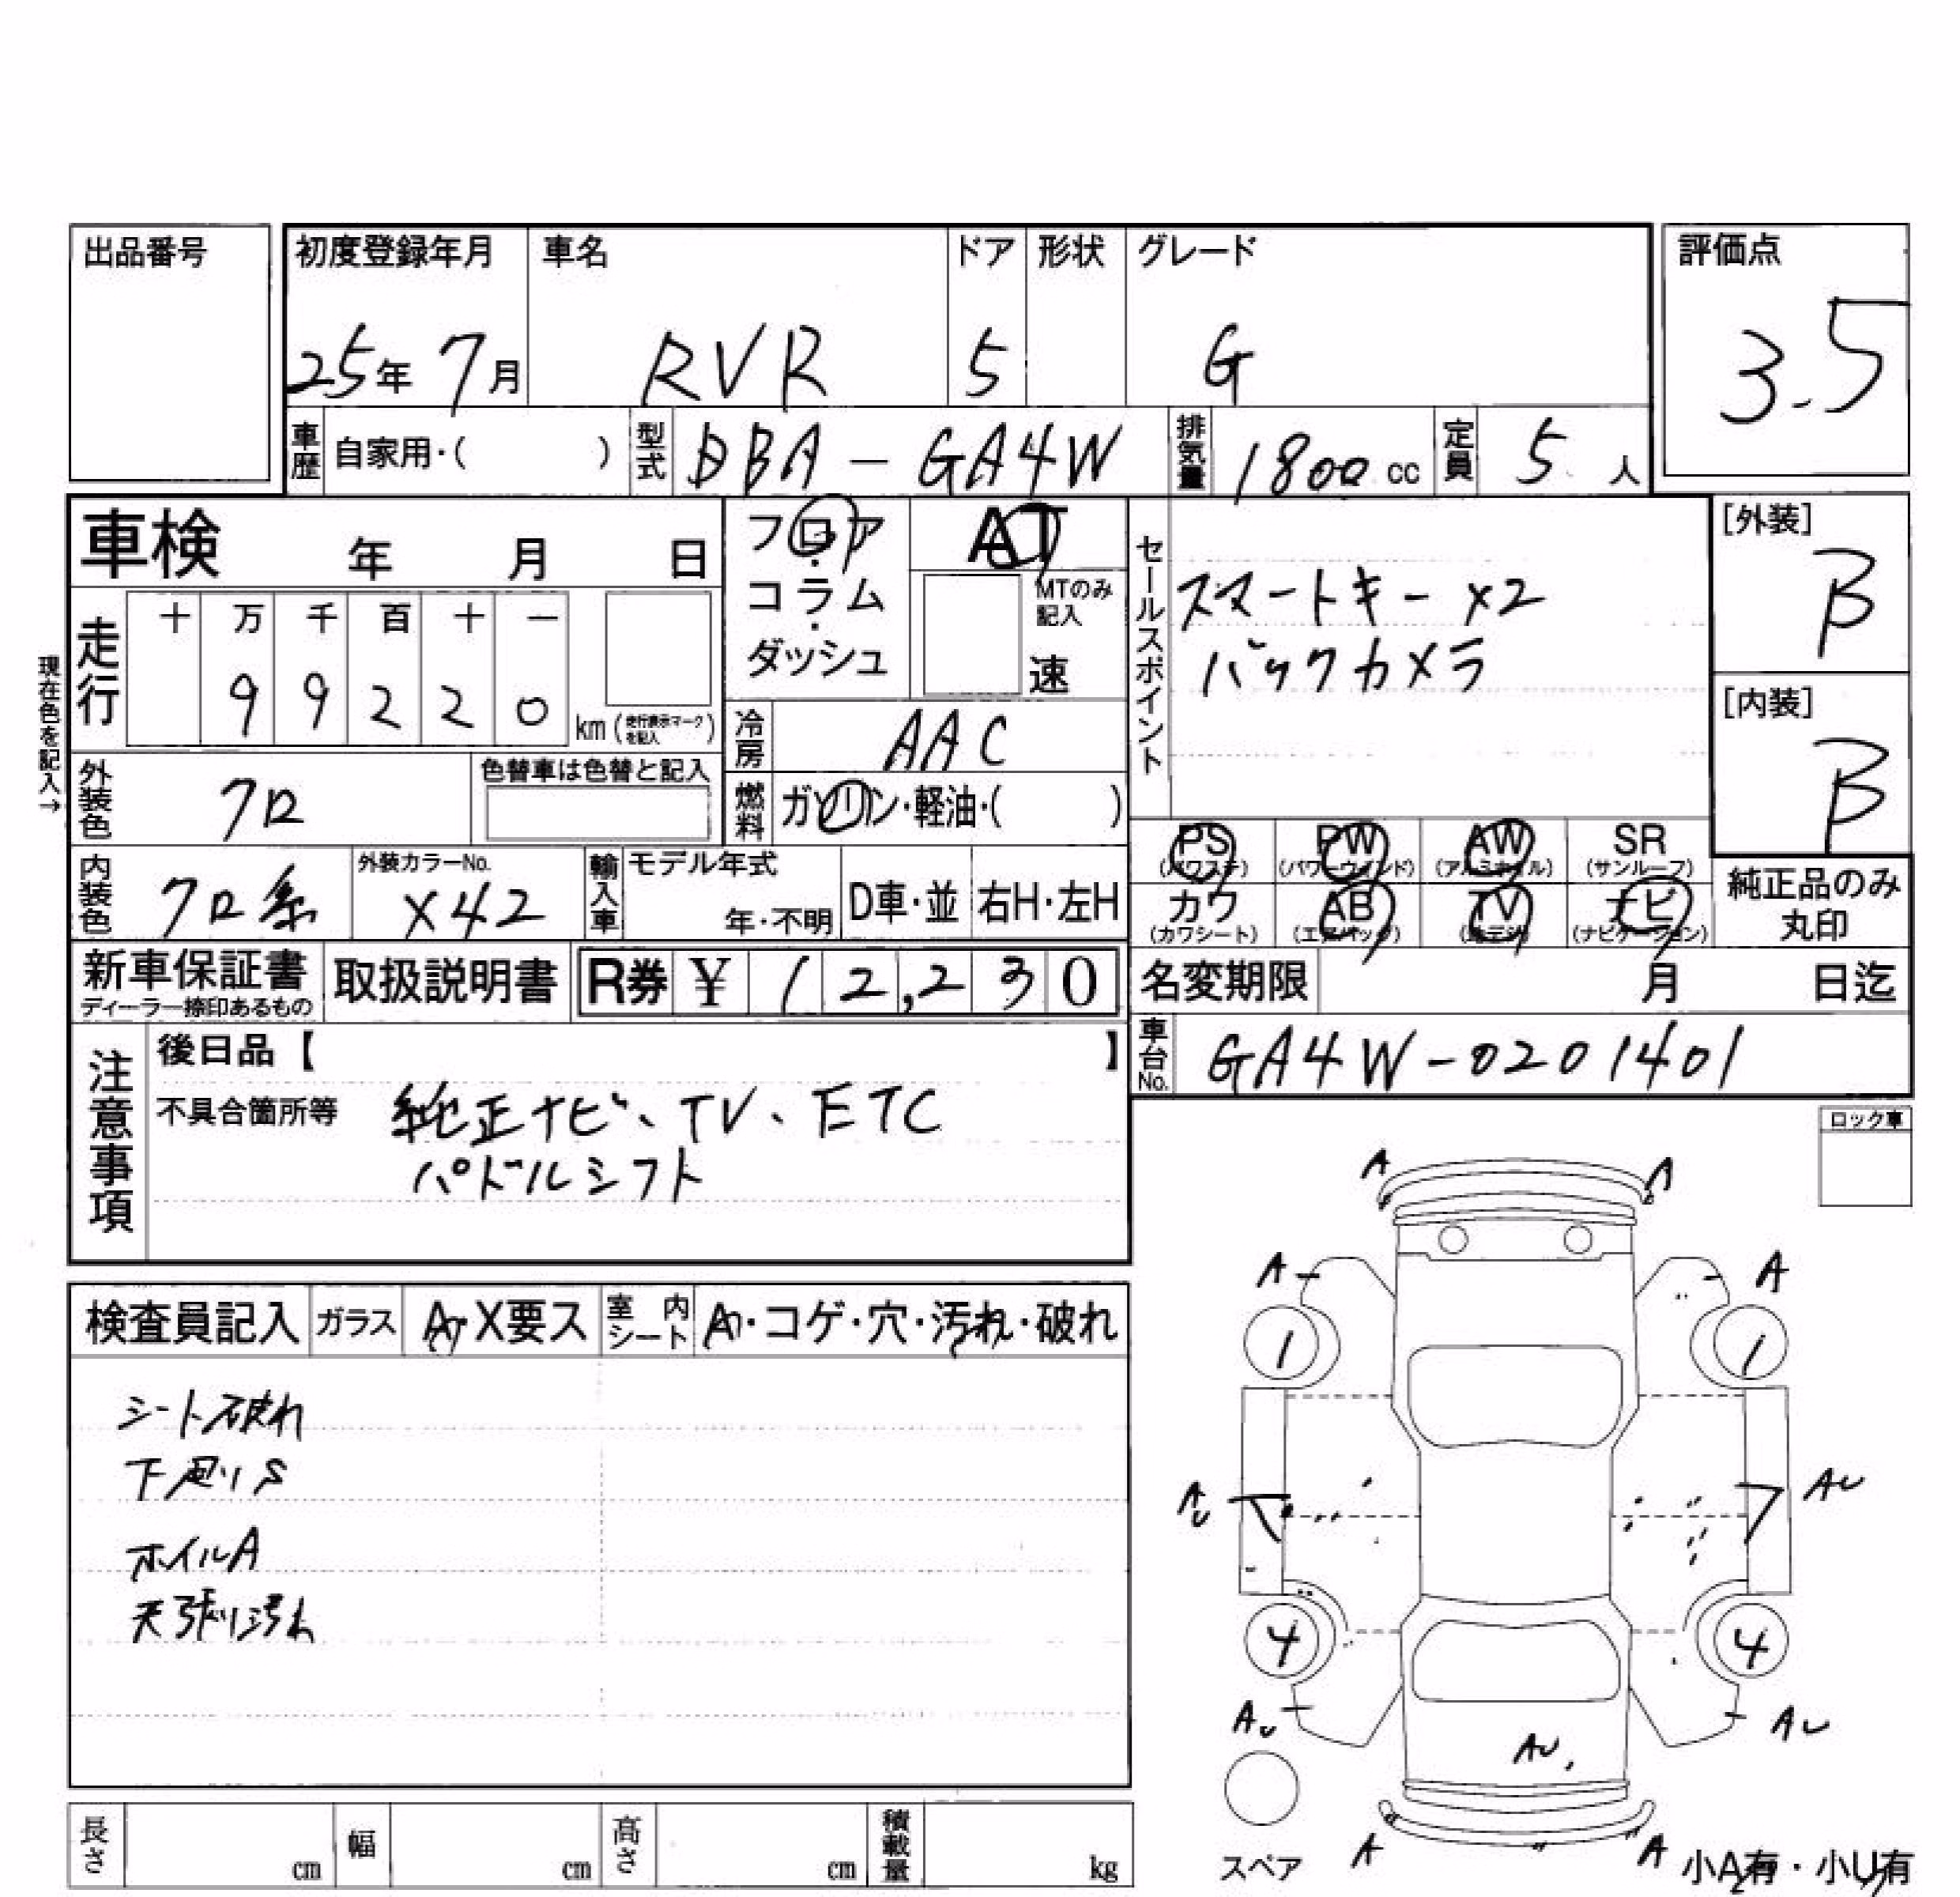 出品番号
初度登録年月 車名 ドア 形状 グレード 評価点
25年 7月 RVR 5 G 3.5
車歴 自家用・( ) 型式 DBA-GA4W 排気量 1800 cc 定員 5 人
車検 年 月 日
フロア・コラム・ダッシュ
AT
MTのみ記入
速
セールスポイント
スマートキー×2
バックカメラ
[外装]
B
[内装]
B
現在色を記入→
走行 十 万 千 百 十 一
9 9 2 2 0 km (走行表示マークを記入)
冷房 AAC
外装色 クロ
色替車は色替と記入
燃料 ガソリン・軽油・( )
PS (パワステ) PW (パワーウィンド) AW (アルミホイル) SR (サンルーフ)
カワ (カワシート) AB (エアバック) TV (地デジ) ナビ (ナビゲーション)
純正品のみ
丸印
内装色 クロ系
外装カラーNo.
X42
輸入車 モデル年式
年・不明 D車・並 右H・左H
新車保証書
ディーラー捺印あるもの
取扱説明書 R券 ¥ 12,230
名変期限 月 日迄
車台No. GA4W-0201401
注意事項
後日品【 】
不具合箇所等 純正ナビ、TV、ETC
パドルシフト
ロック車
検査員記入 ガラス A・X要ス 室内シート A・コゲ・穴・汚れ・破れ
シート破れ
下廻りS
ホイルA
天張り汚れ
A A
A A
1 1
AU AU
4 4
AU AU
AU
A A
スペア
小A有・小U有
長さ cm 幅 cm 高さ cm 積載量 kg